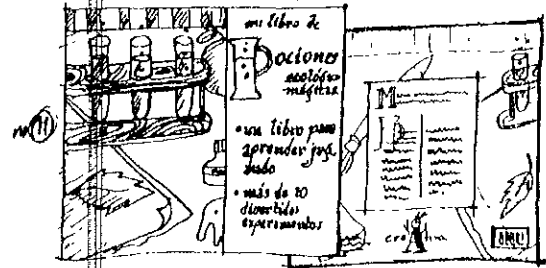 mi libro de
pociones
ecológico-
mágicas
• un libro para
aprender ju
gando
• más de 10
divertidos
experimentos
nº 11
M